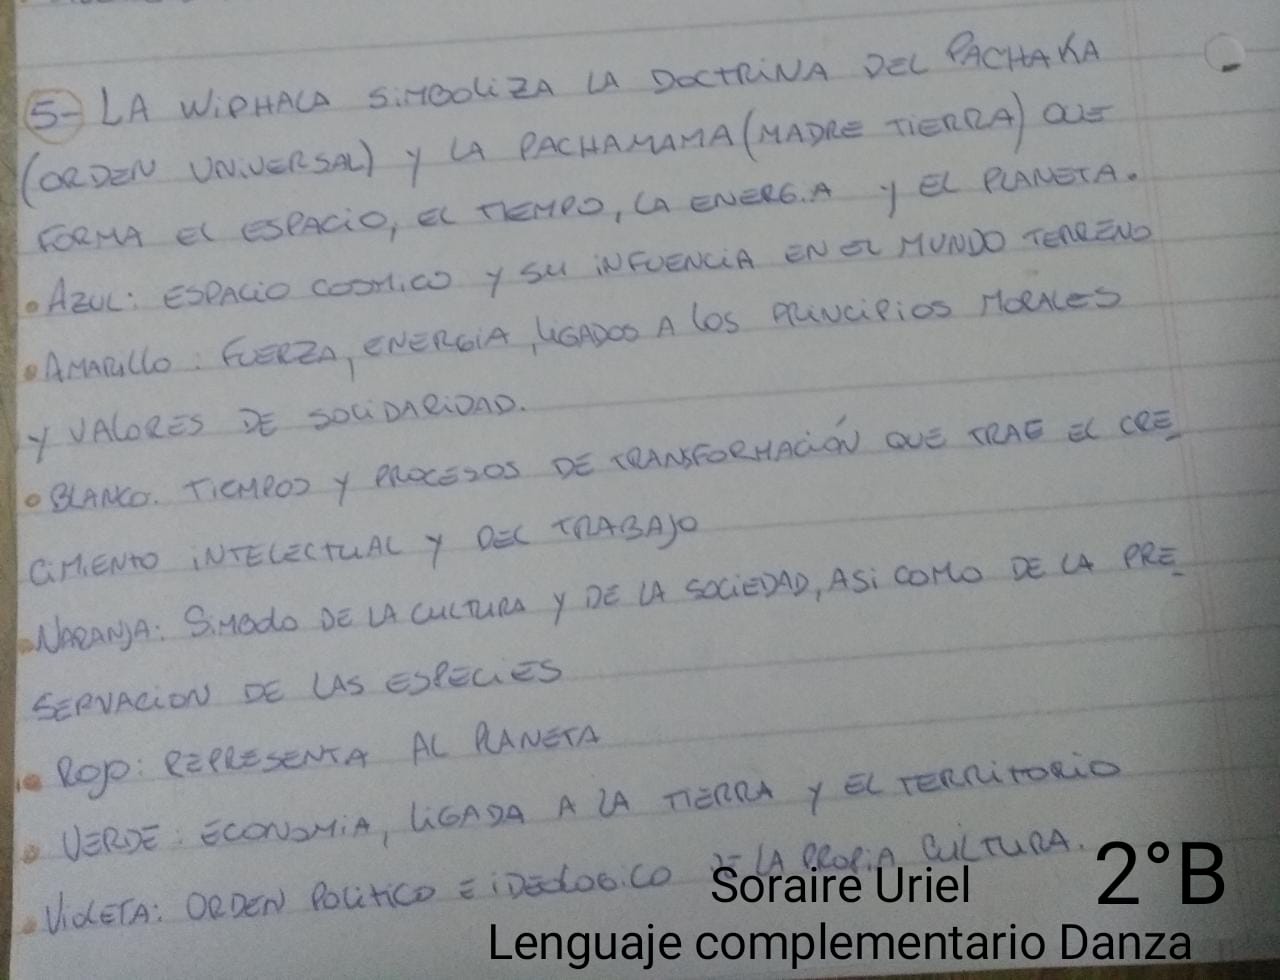 5- LA WIPHALA SIMBOLIZA LA DOCTRINA DEL PACHAKA
(ORDEN UNIVERSAL) Y LA PACHAMAMA (MADRE TIERRA) QUE
FORMA EL ESPACIO, EL TIEMPO, LA ENERGIA Y EL PLANETA.
• AZUL: ESPACIO COSMICO Y SU INFUENCIA EN EL MUNDO TERRENO
• AMARILLO: FUERZA, ENERGIA, LIGADOS A LOS PRINCIPIOS MORALES
Y VALORES DE SOLIDARIDAD.
• BLANCO. TIEMPOS Y PROCESOS DE TRANSFORMACIÓN QUE TRAE EL CRE_
CIMIENTO INTELECTUAL Y DEL TRABAJO
• NARANJA: SIMBOLO DE LA CULTURA Y DE LA SOCIEDAD, ASI COMO DE LA PRE_
SERVACION DE LAS ESPECIES
• ROJO: REPRESENTA AL PLANETA
• VERDE: ECONOMIA, LIGADA A LA TIERRA Y EL TERRITORIO
• VIOLETA: ORDEN POLITICO E IDEOLOGICO DE LA PROPIA CULTURA.
Soraire Uriel 2°B
Lenguaje complementario Danza